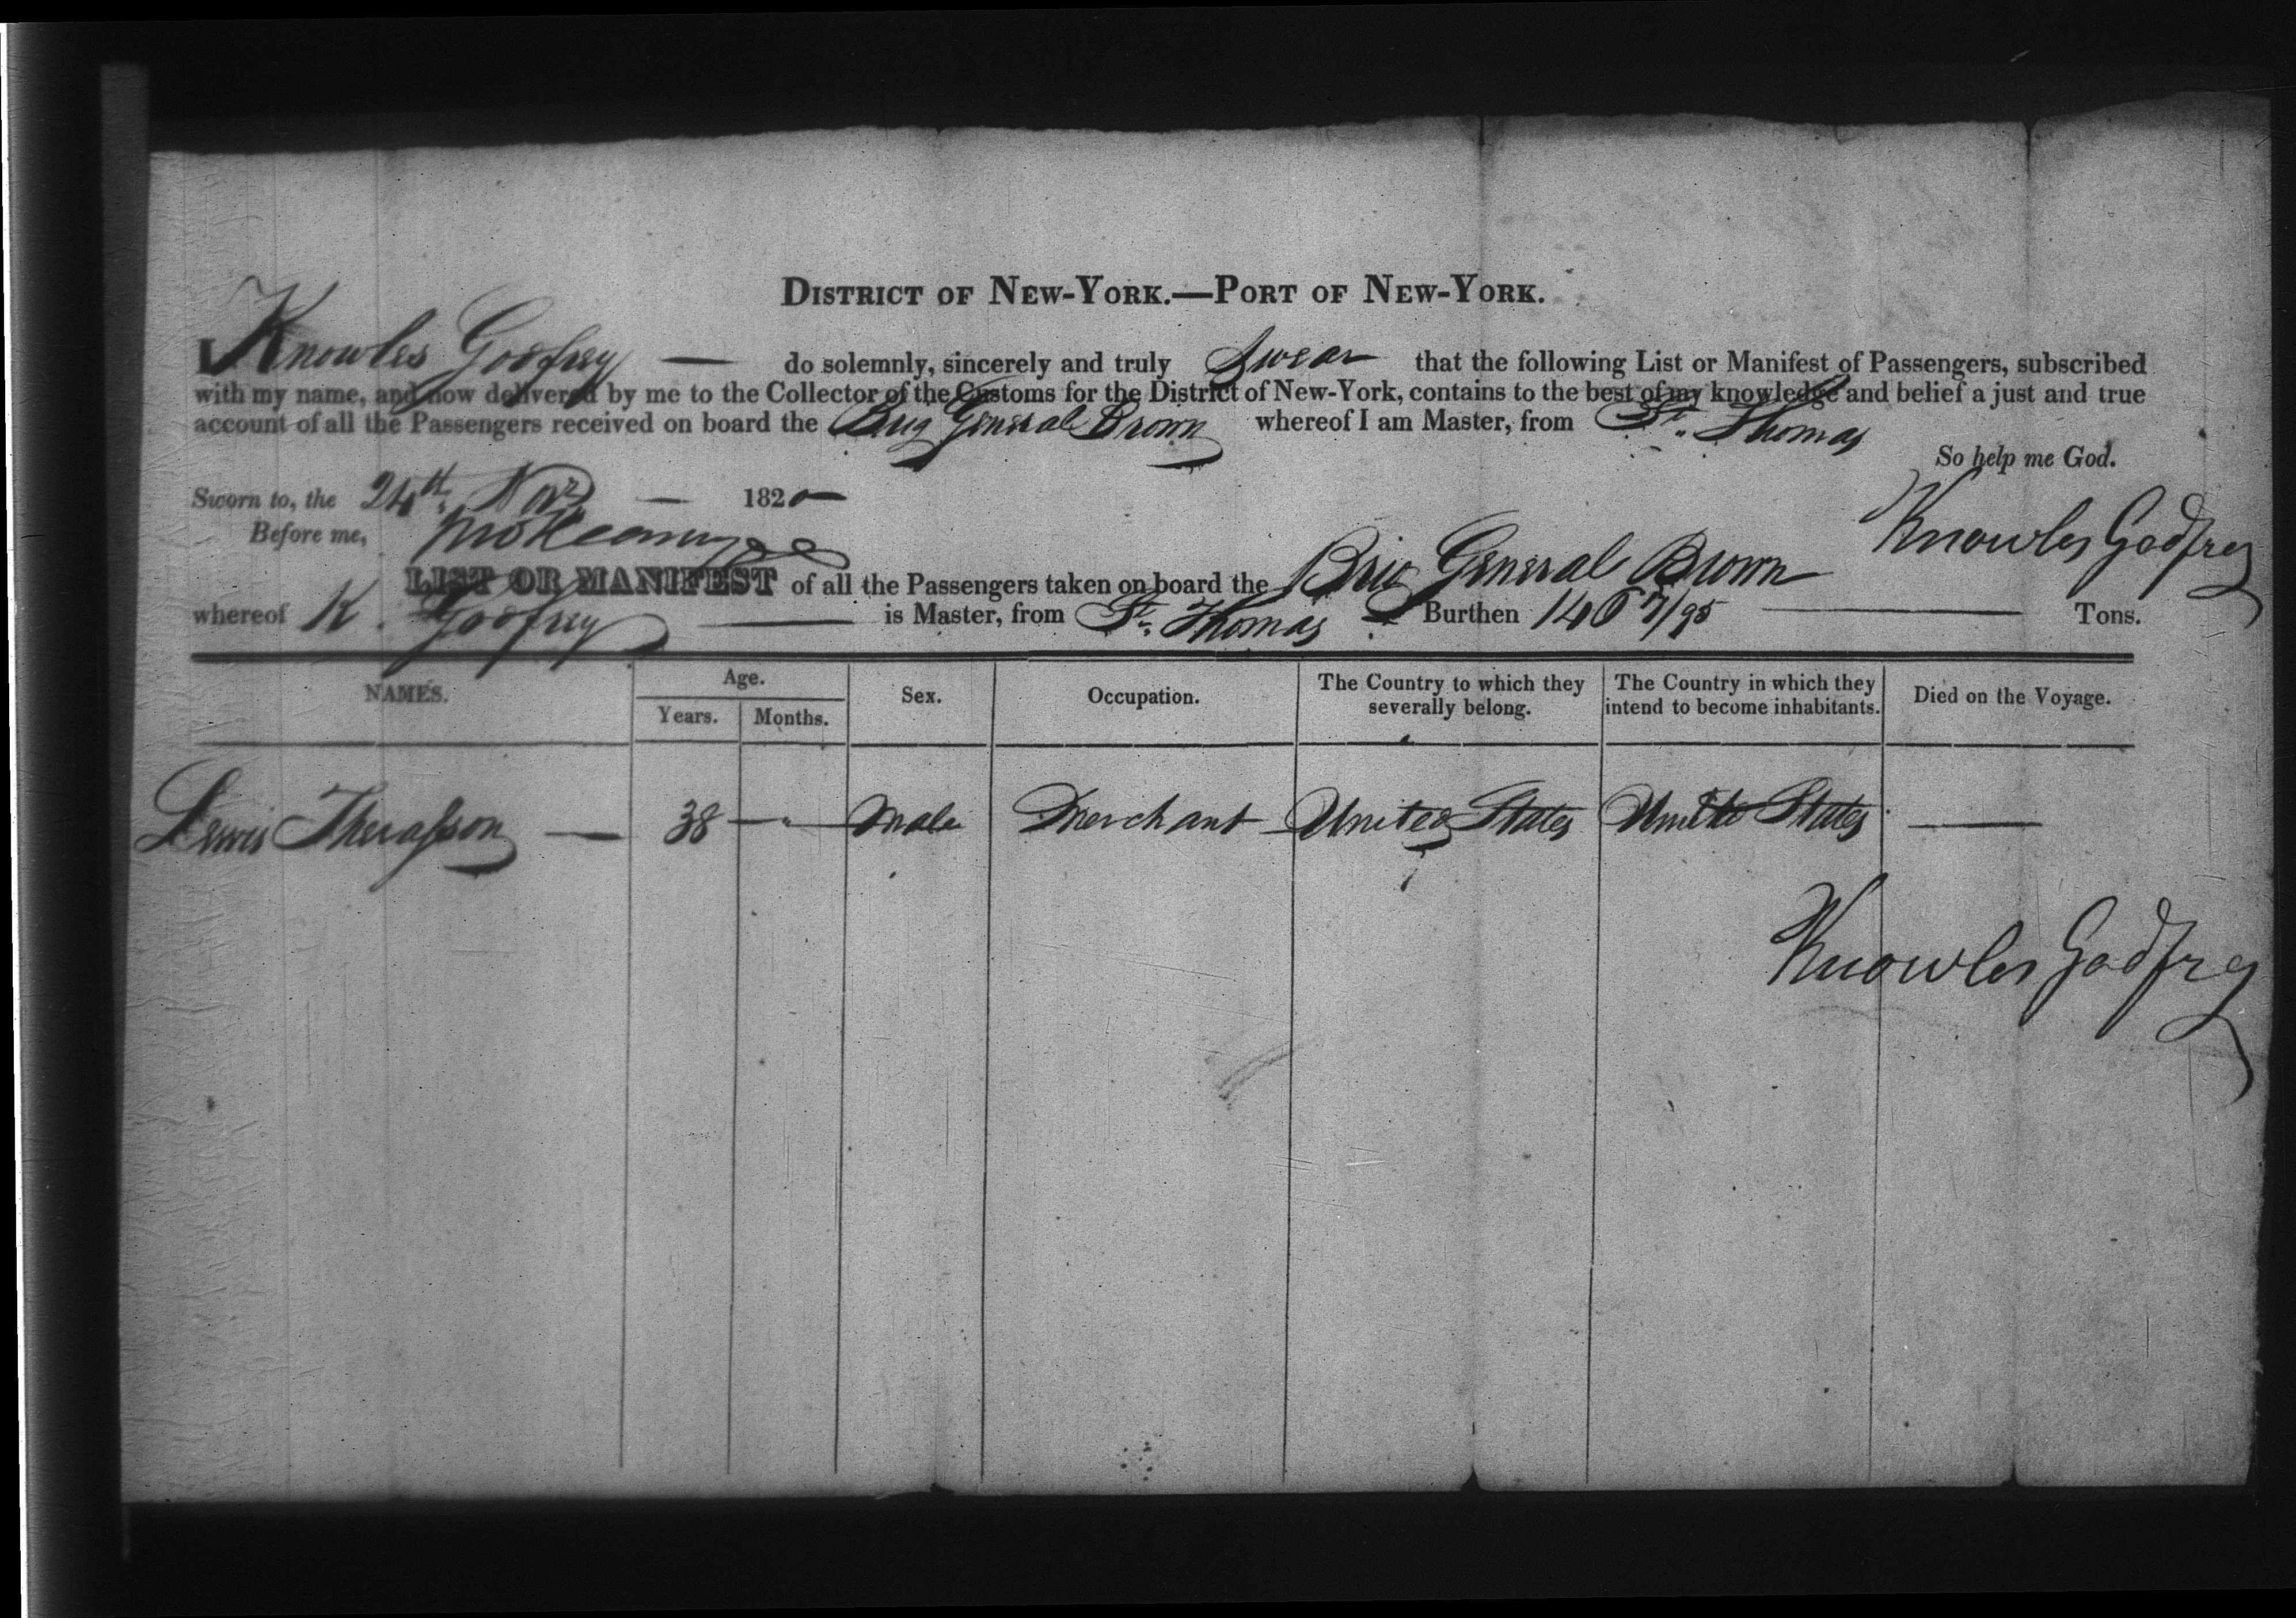 DISTRICT OF NEW-YORK.—PORT OF NEW-YORK.
I Knowles Godfrey — do solemnly, sincerely and truly Swear that the following List or Manifest of Passengers, subscribed
with my name, and now delivered by me to the Collector of the Customs for the District of New-York, contains to the best of my knowledge and belief a just and true
account of all the Passengers received on board the Brig General Brown whereof I am Master, from St. Thomas
So help me God.
Sworn to, the 24th Novr — 1820
Knowles Godfrey
Before me,
LIST OR MANIFEST of all the Passengers taken on board the Brig General Brown
whereof K. Godfrey — is Master, from St. Thomas Burthen 146 7/95 — Tons.
NAMES. Age. Years. Months. Sex. Occupation. The Country to which they severally belong. The Country in which they intend to become inhabitants. Died on the Voyage.
Lewis Therasson — 38 — " Male Merchant United States United States —
Knowles Godfrey